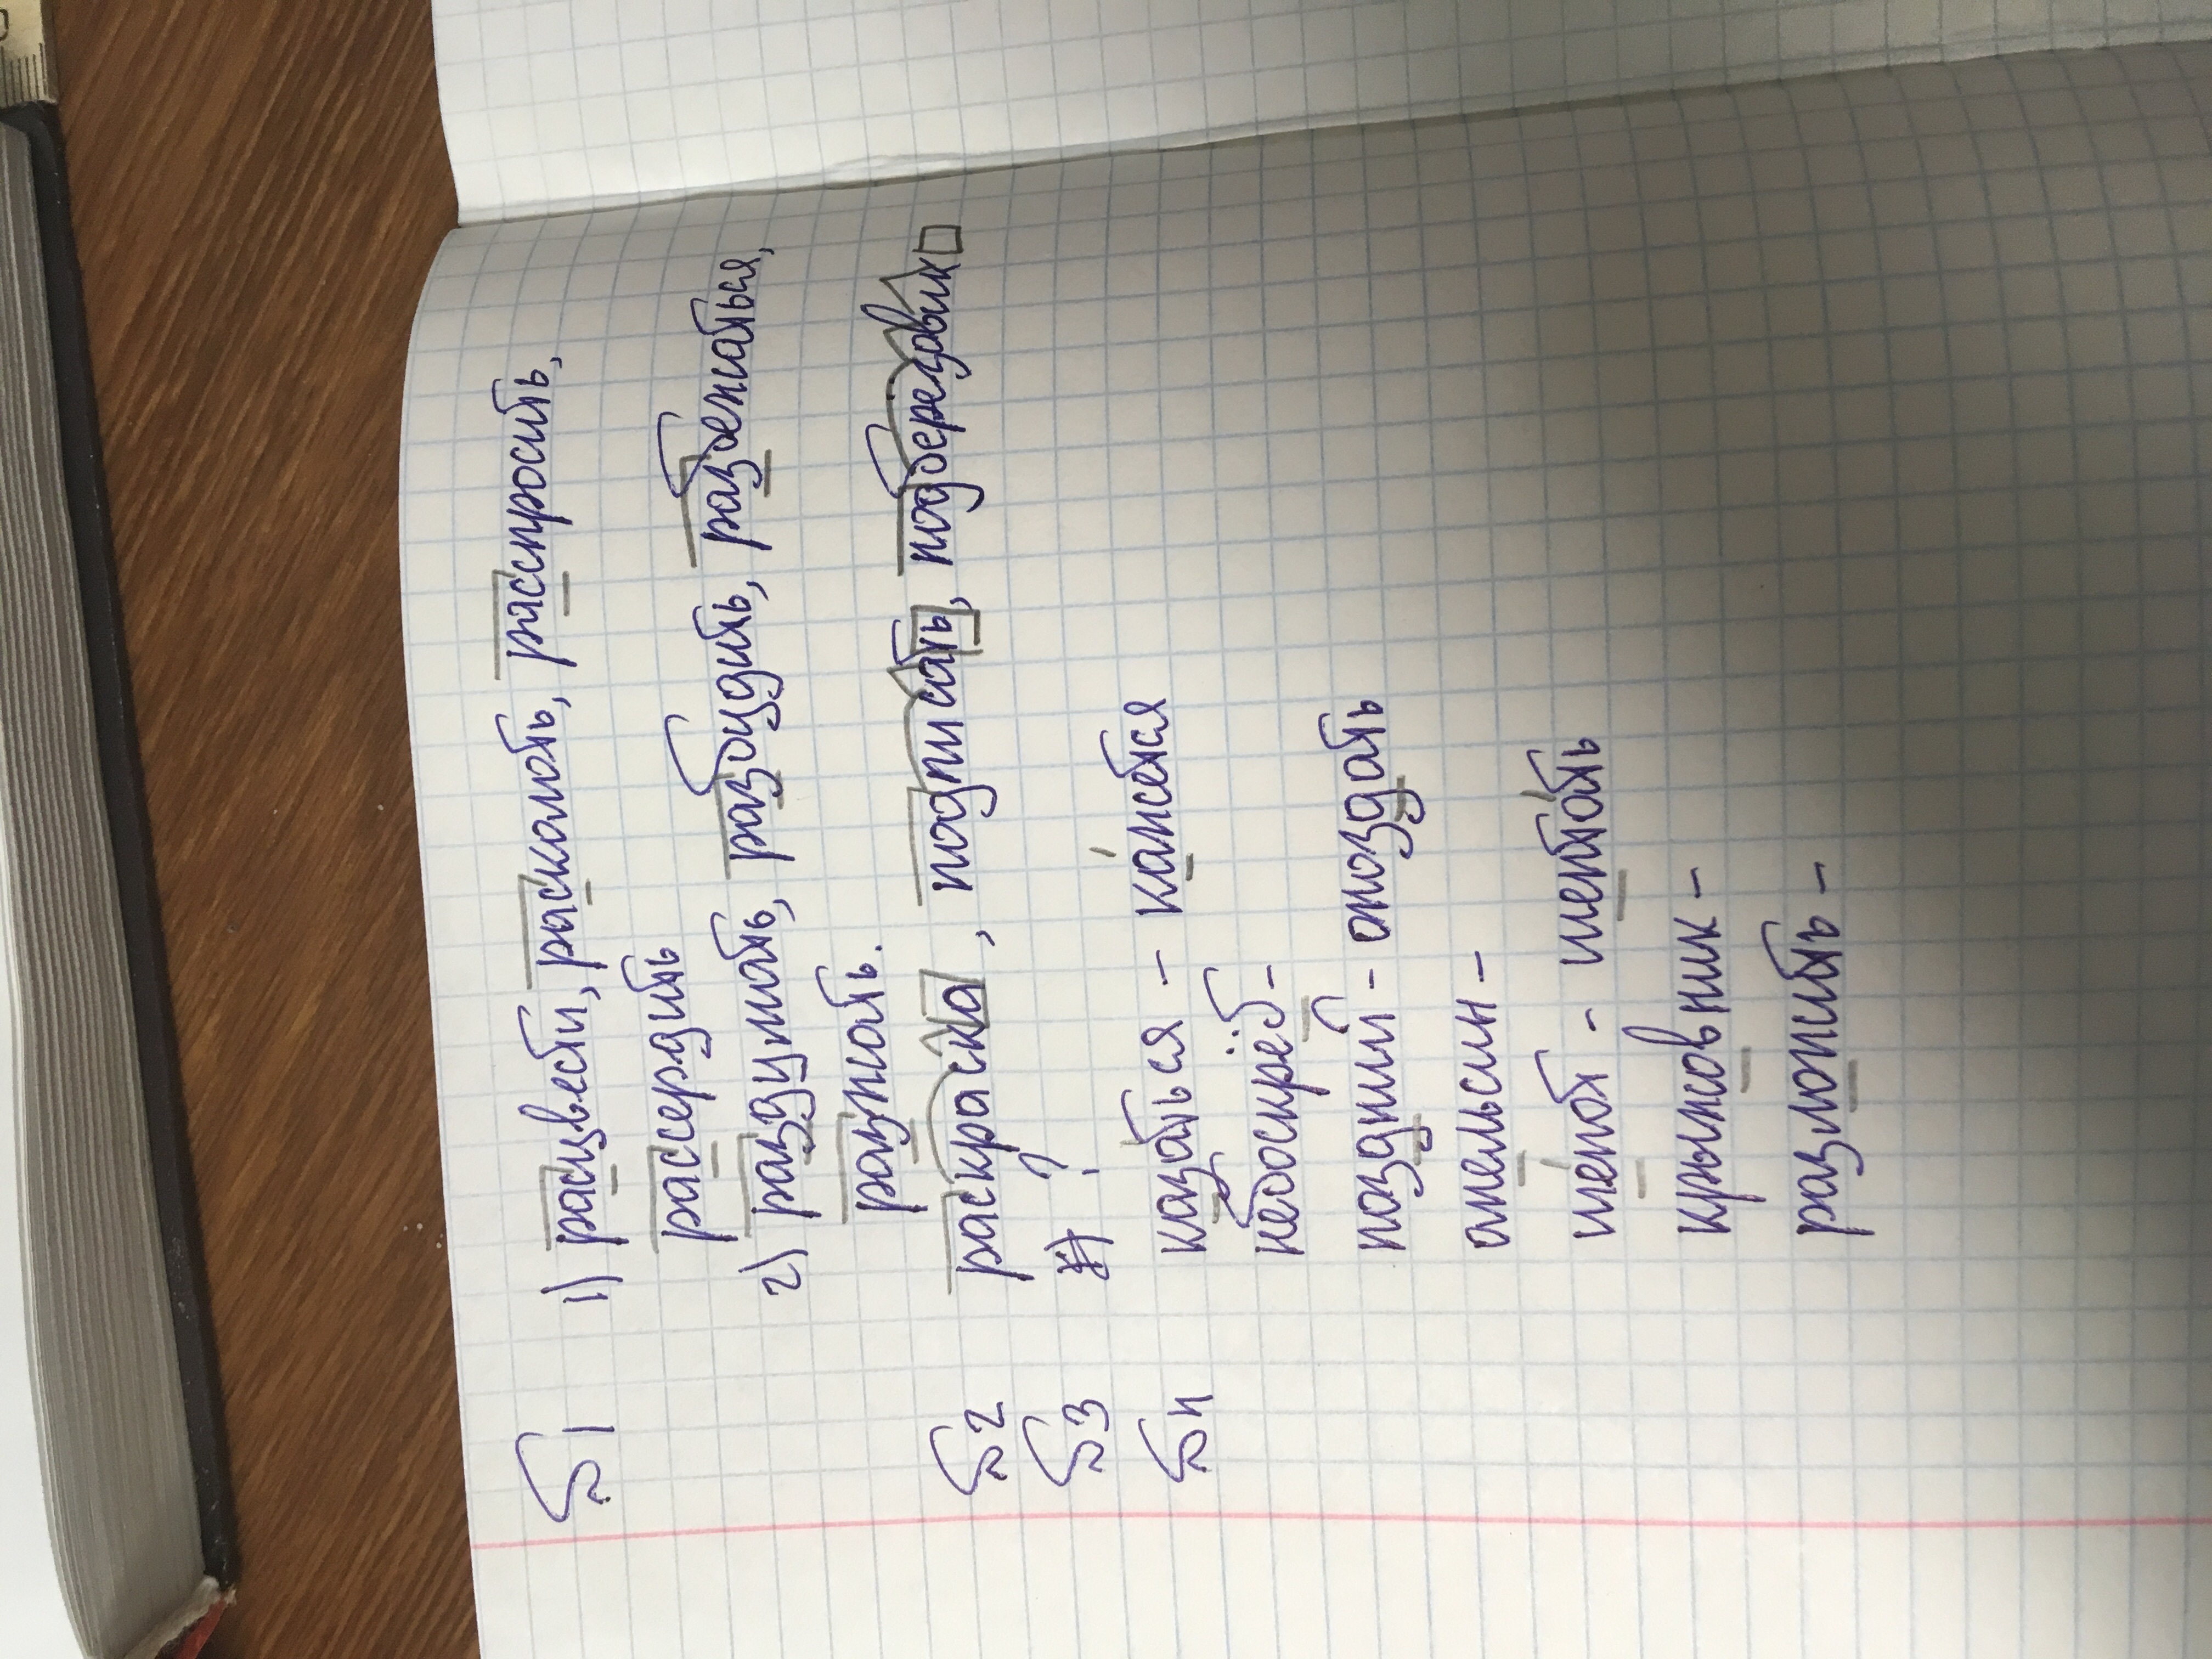 Б1 1) расцвести, расколоть, расспросить,
рассердить
2) раздумать, разбудить, разбежаться,
разжать.
Б2 раскраска, подписать, подберезовик
Б3 ?
Б4 казаться - кажется
небоскрёб -
поздний - опоздать
апельсин -
шепот - шептать
крыжовник -
разложить -